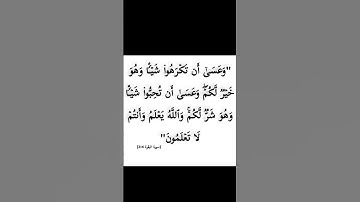 "وَعَسَىٰٓ أَن تَكْرَهُوا۟ شَيْـًٔا وَهُوَ
خَيْرٌ لَّكُمْ ۖ وَعَسَىٰٓ أَن تُحِبُّوا۟ شَيْـًٔا
وَهُوَ شَرٌّ لَّكُمْ ۗ وَٱللَّهُ يَعْلَمُ وَأَنتُمْ
لَا تَعْلَمُونَ"
[سورة البقرة 216]